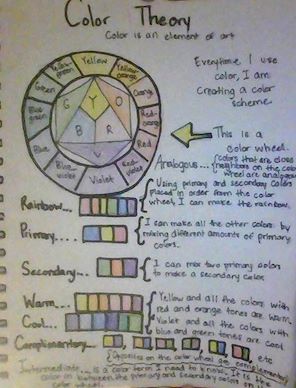 Color Theory
Color is an element of art
Everytime I use
color, I am
creating a color
scheme.
Yellow
Yellow-orange
Orange
Red-orange
Red
Red-violet
Violet
Blue-violet
Blue
Blue-green
Green
Yellow-green
Y
O
R
V
B
G
This is a
color wheel.
Analogous... (colors that are close
neighbors on the color
wheel are analogous
Using primary and secondary colors
placed in order from the color
wheel, I can make the rainbow.
Rainbow...
Primary...
I can make all the other colors by
mixing different amounts of primary
colors.
Secondary...
I can mix two primary colors
to make a secondary color.
Warm...
Yellow and all the colors with
red and orange tones are warm.
Cool...
Violet and all the colors with
blue and green tones are cool.
Complimentary...
etc.
Opposites on the color wheel are complementary
Intermediate... is a color term I need to know. It is the
color in between the primary and secondary color on the
color wheel.